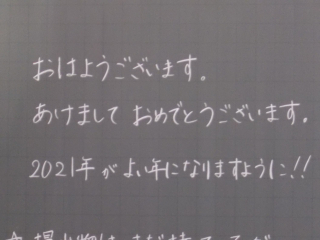 おはようございます。
あけまして おめでとうございます。
2021年がよい年になりますように!!